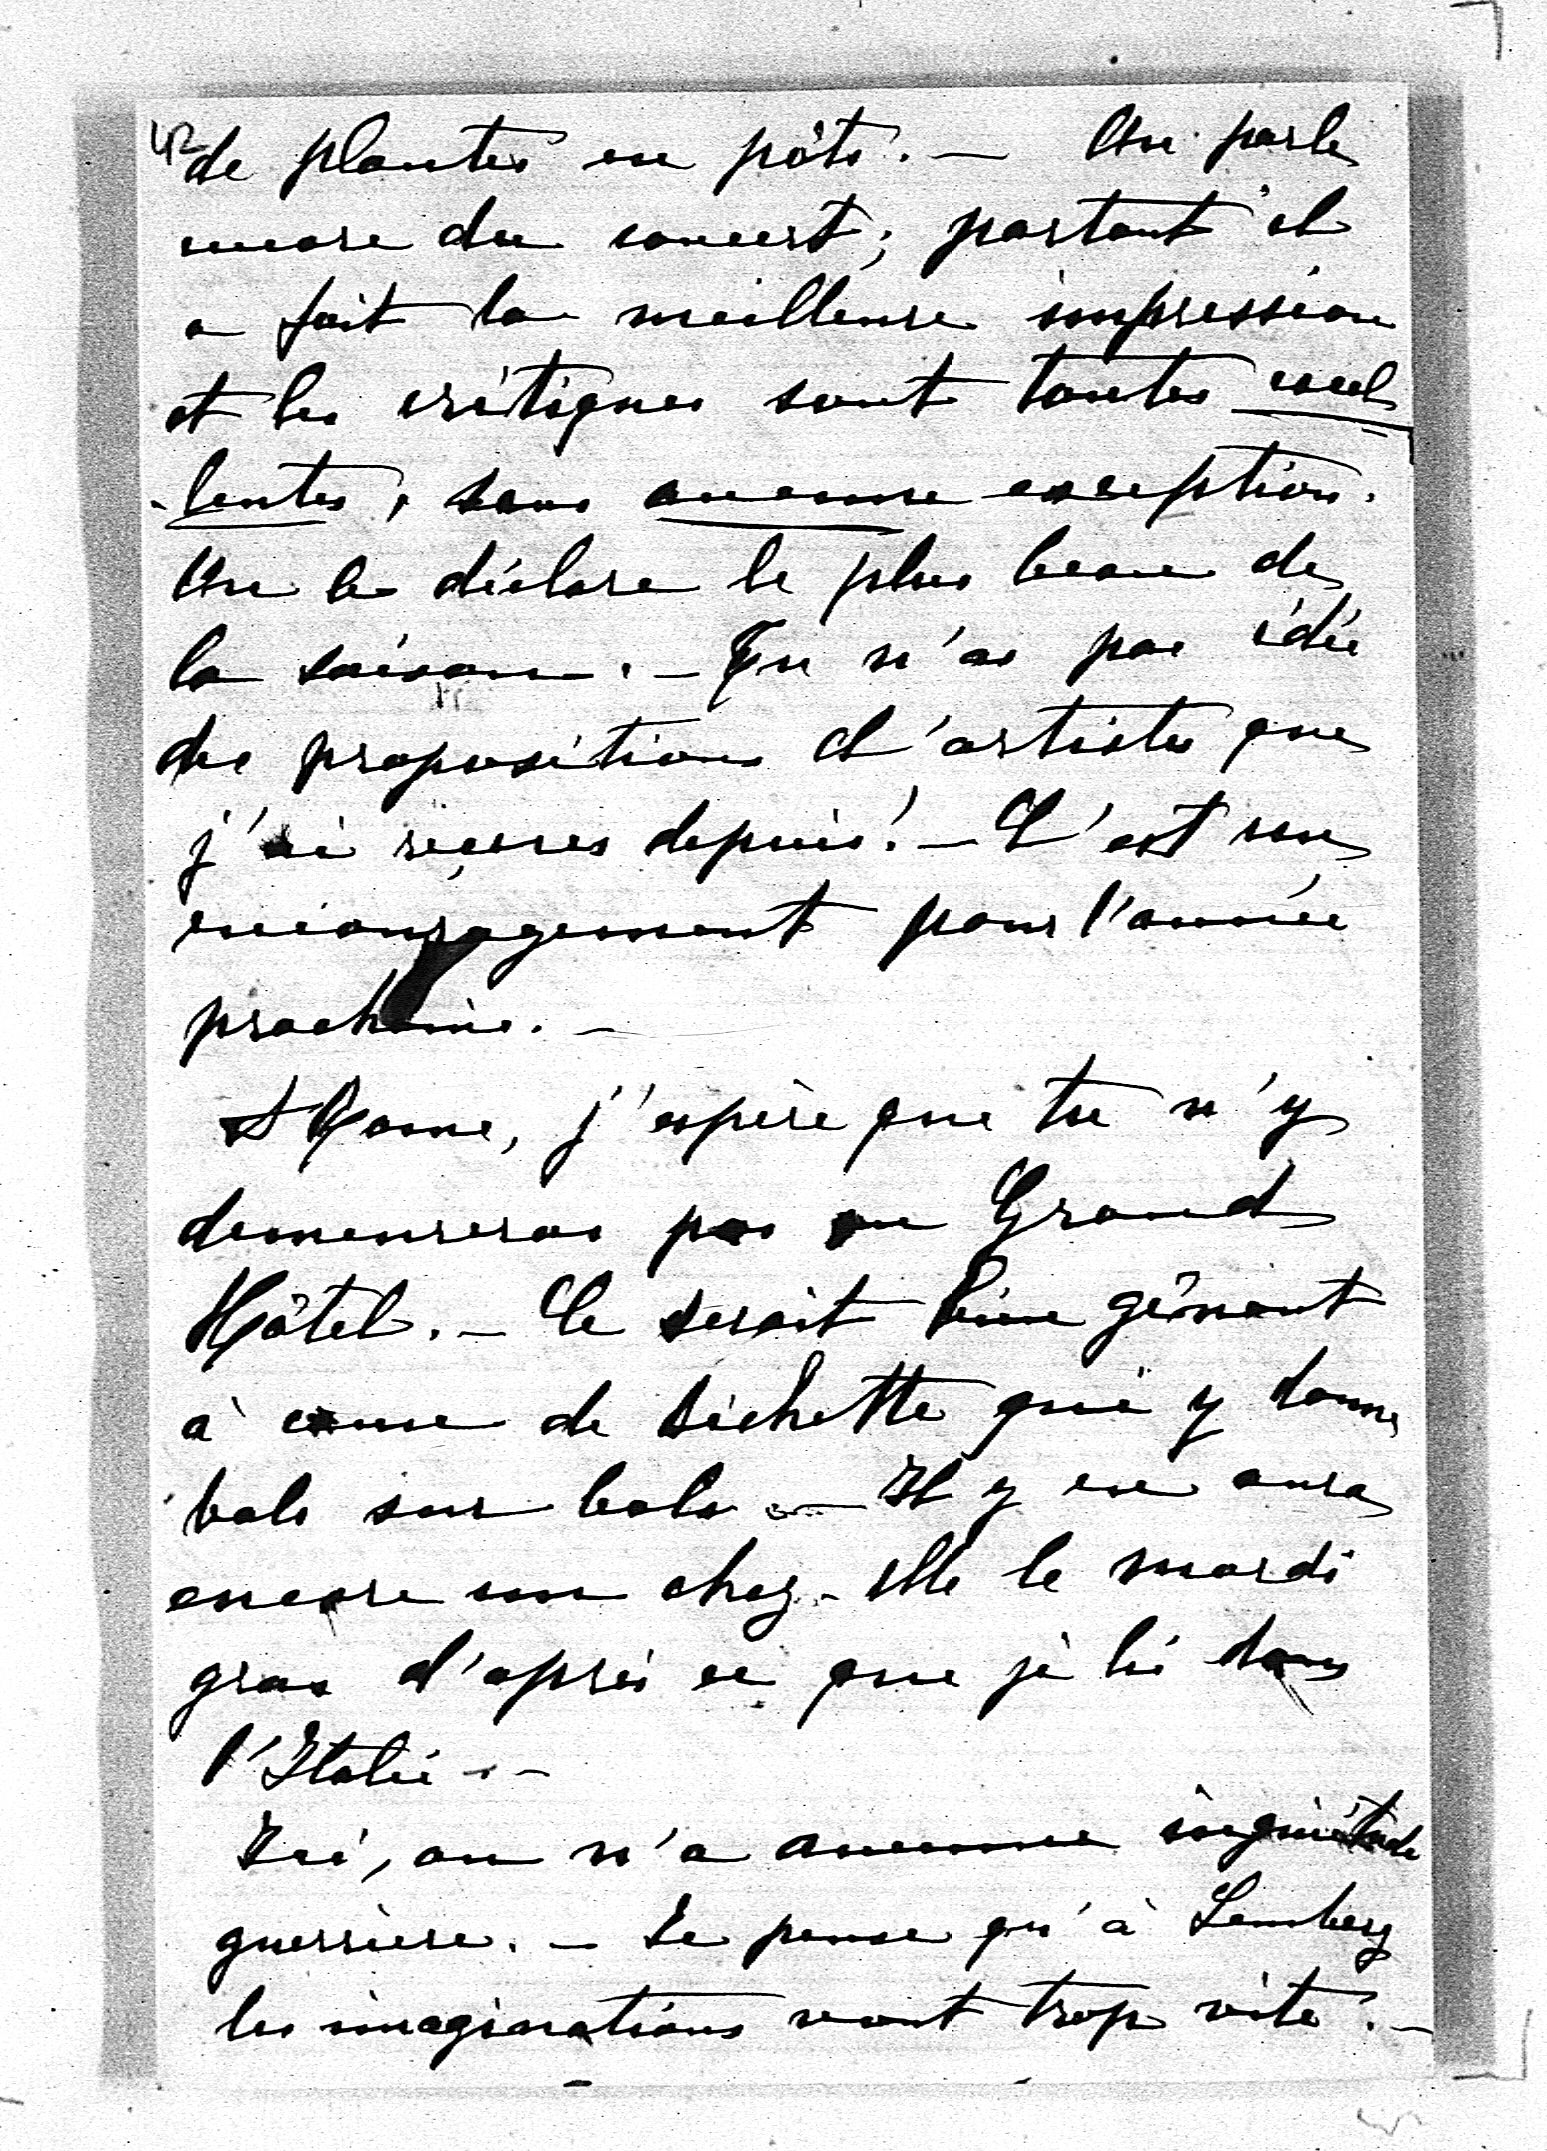 42
de plantes en pots. — On parle
encore du concert; partout il
a fait la meilleure impression
et les critiques sont toutes excel
-lentes, sans aucune exception.
On le déclare le plus beau de
la saison. — Tu n'as pas idée
des propositions d'artistes que
j'ai reçues depuis! — C'est un
encouragement pour l'année
prochaine. —
A Rome, j'espère que tu n'y
demeureras pas au Grand
Hôtel. — Ce serait bien gênant
à cause de Bichette qui y donne
bals sur bals — Il y en aura
encore un chez-elle le mardi
gras d'après ce que je lis dans
l'Italie. —
Ici, on n'a aucune inquiétude
guerrière. — Je pense qu'à Lemberg
les imaginations vont trop vite. —